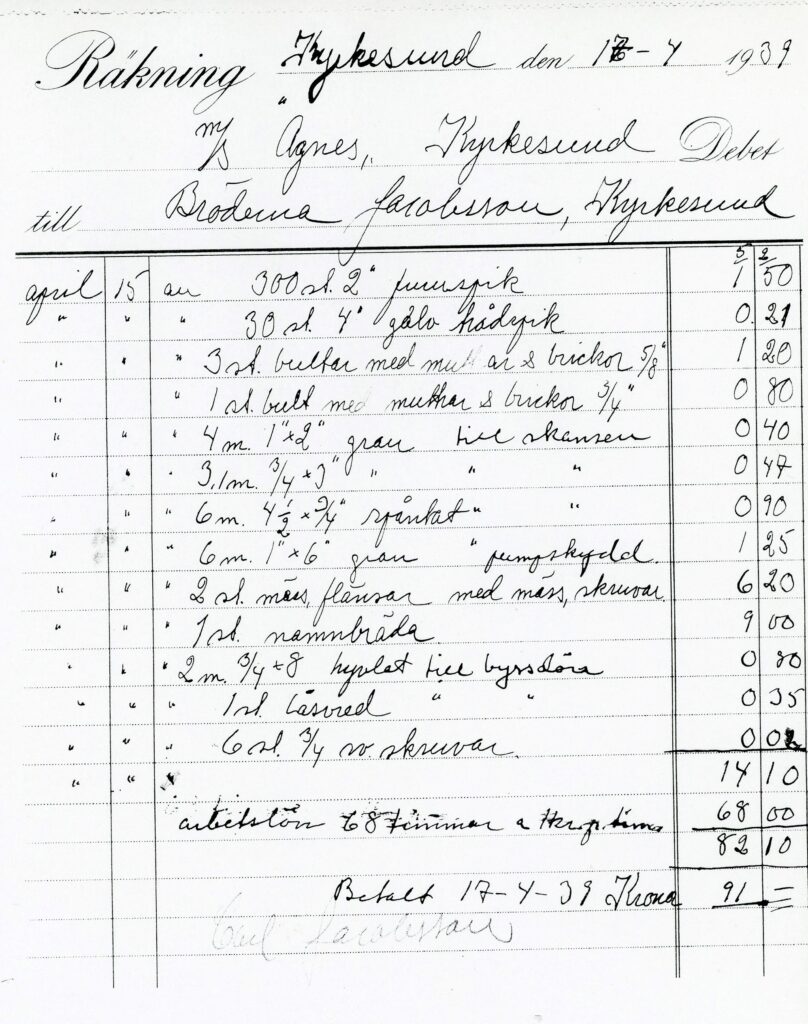 Räkning Kyrkesund den 17-4 1939
"
m/s Agnes, Kyrkesund Debet
till Bröderna Jacobsson, Kyrkesund
april 15 au 300 st. 2" furuspik 1 50
" " " 30 st. 4" galv trådspik 0.21
" " " 3 st. bultar med muttar & brickor 5/8" 1 20
" " 1 st. bult med muttrar & brickor 3/4" 0 80
" " " 4 m. 1"×2" gran till skansen 0 40
" " " 3,1 m. 3/4×3" " " " 0 47
" " " 6 m. 4 1/2×3/4" spåntat " " 0 90
" " " 6 m. 1"×6" gran " pumpskydd. 1 25
" " " 2 st. mäss, flänsar med mäss, skruvar 6 20
" " " 1 st. namnbräda 9 00
" " " 2 m. 3/4×8 hyvlat till byssdöra 0 80
" " " 1 st. låsvred " " 0 35
" " " 6 st. 3/4 sv. skruvar. 0 02
" " " 14 10
arbetslön 68 timmar a 68 00
82 10
Betalt 17-4-39 Krona 91 =
Carl Jacobsson